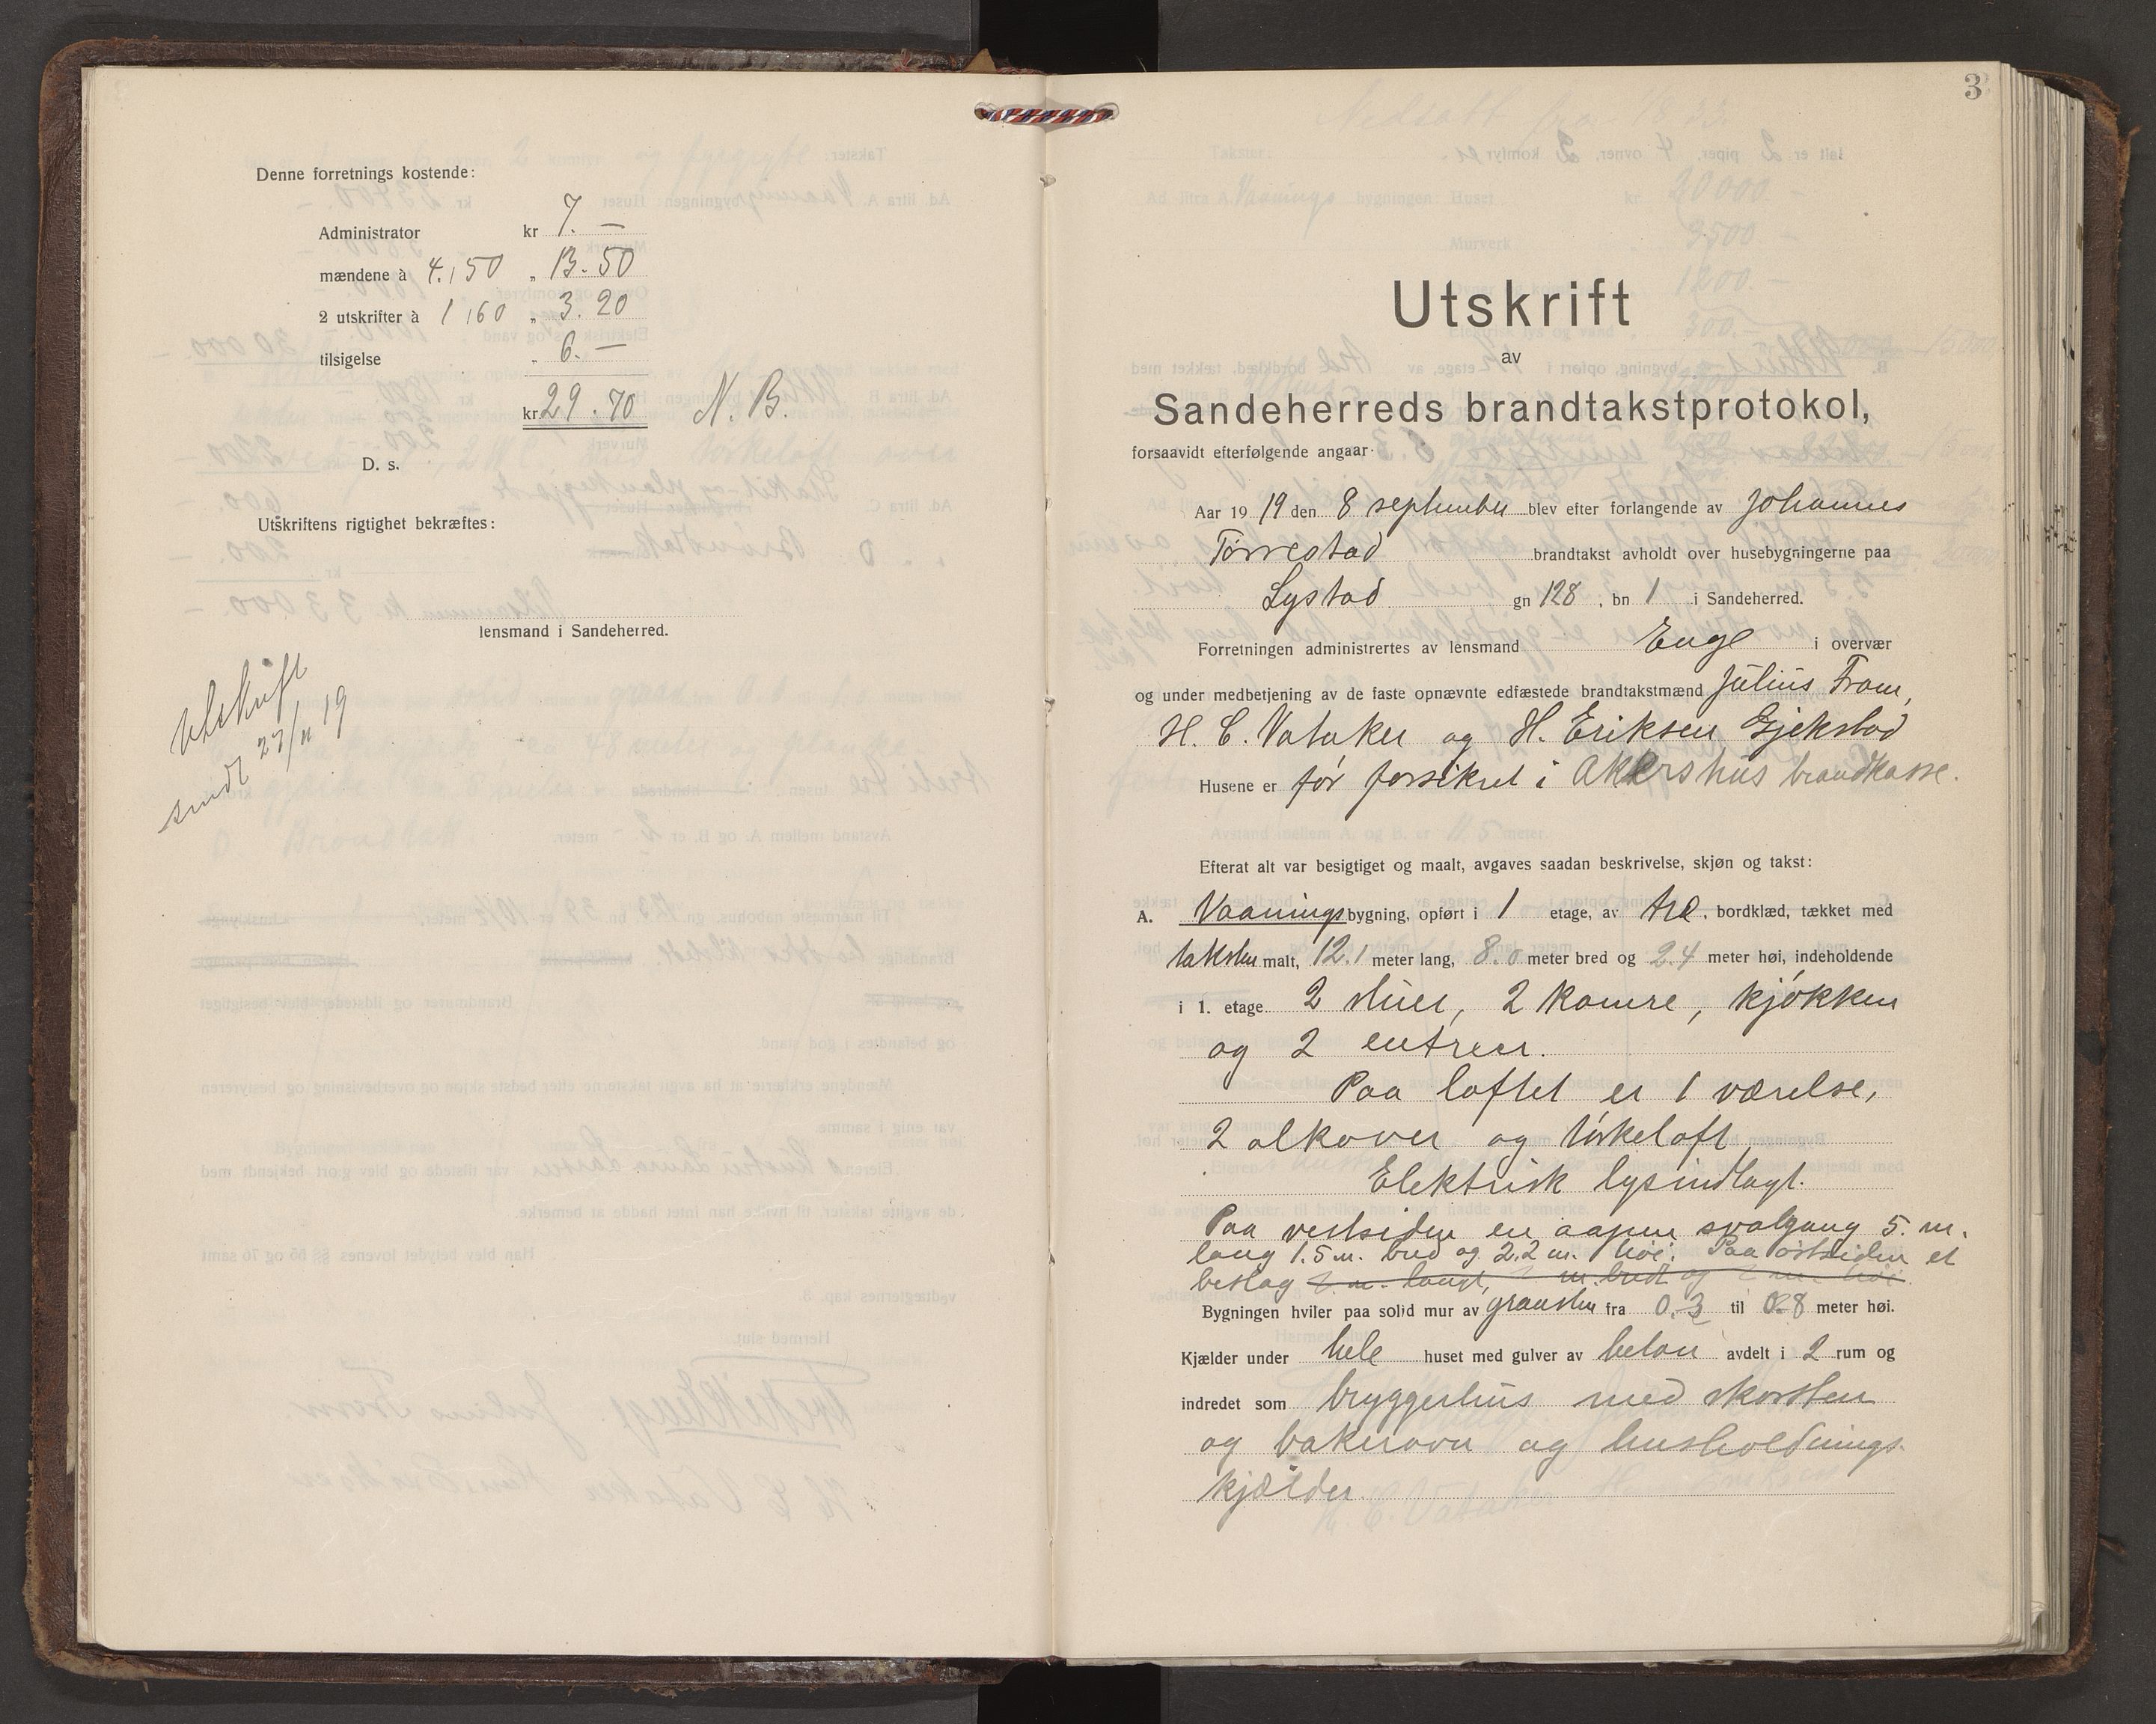 Denne forretnings kostende:
Administrator kr 7. —
mændene à 4.50 „ 13.50
2 utskrifter à 1 60 „ 3.20
tilsigelse „ 6. —
kr. 29.70 N. B.
D. s.
Utskriftens rigtighet bekræftes:
lensmand i Sandeherred.
Utskrift
sendt 27/11 19
3
Utskrift
av
Sandeherreds brandtakstprotokol,
forsaavidt efterfølgende angaar.
Aar 1919 den 8 september blev efter forlangende av Johannes
Tørrestad brandtakst avholdt over husebygningerne paa
Lystad gn 128, bn 1 i Sandeherred.
Forretningen administrertes av lensmand Enge i overvær
og under medbetjening av de faste opnævnte edfæstede brandtakstmænd Julius Fram,
H. C. Vataker og H. Eriksen Gjekstad
Husene er før forsikret i Akershus brandkasse.
Efterat alt var besigtiget og maalt, avgaves saadan beskrivelse, skjøn og takst:
A. Vaanings bygning, opført i 1 etage, av træ, bordklæd, tækket med
taksten malt, 12.1 meter lang, 8.0 meter bred og 2.4 meter høi, indeholdende
i 1. etage 2 stuer, 2 kamre, kjøkken
og 2 entreer.
Paa loftet er 1 værelse,
2 alkover og tørkeloft
Elektrisk lys indlagt.
Paa vestsiden en aapen svalgang 5. m.
lang 1.5 m. bred og 2.2 m. høi. Paa østsiden et
beslag 2 m. langt, m. bredt og 2 m høi.
Bygningen hviler paa solid mur av graasten fra 0.3 til 0.8 meter høi.
Kjælder under hele huset med gulver av beton avdelt i 2 rum og
indredet som bryggerhus med skorsten
og bakerovn og husholdnings-
kjælder.